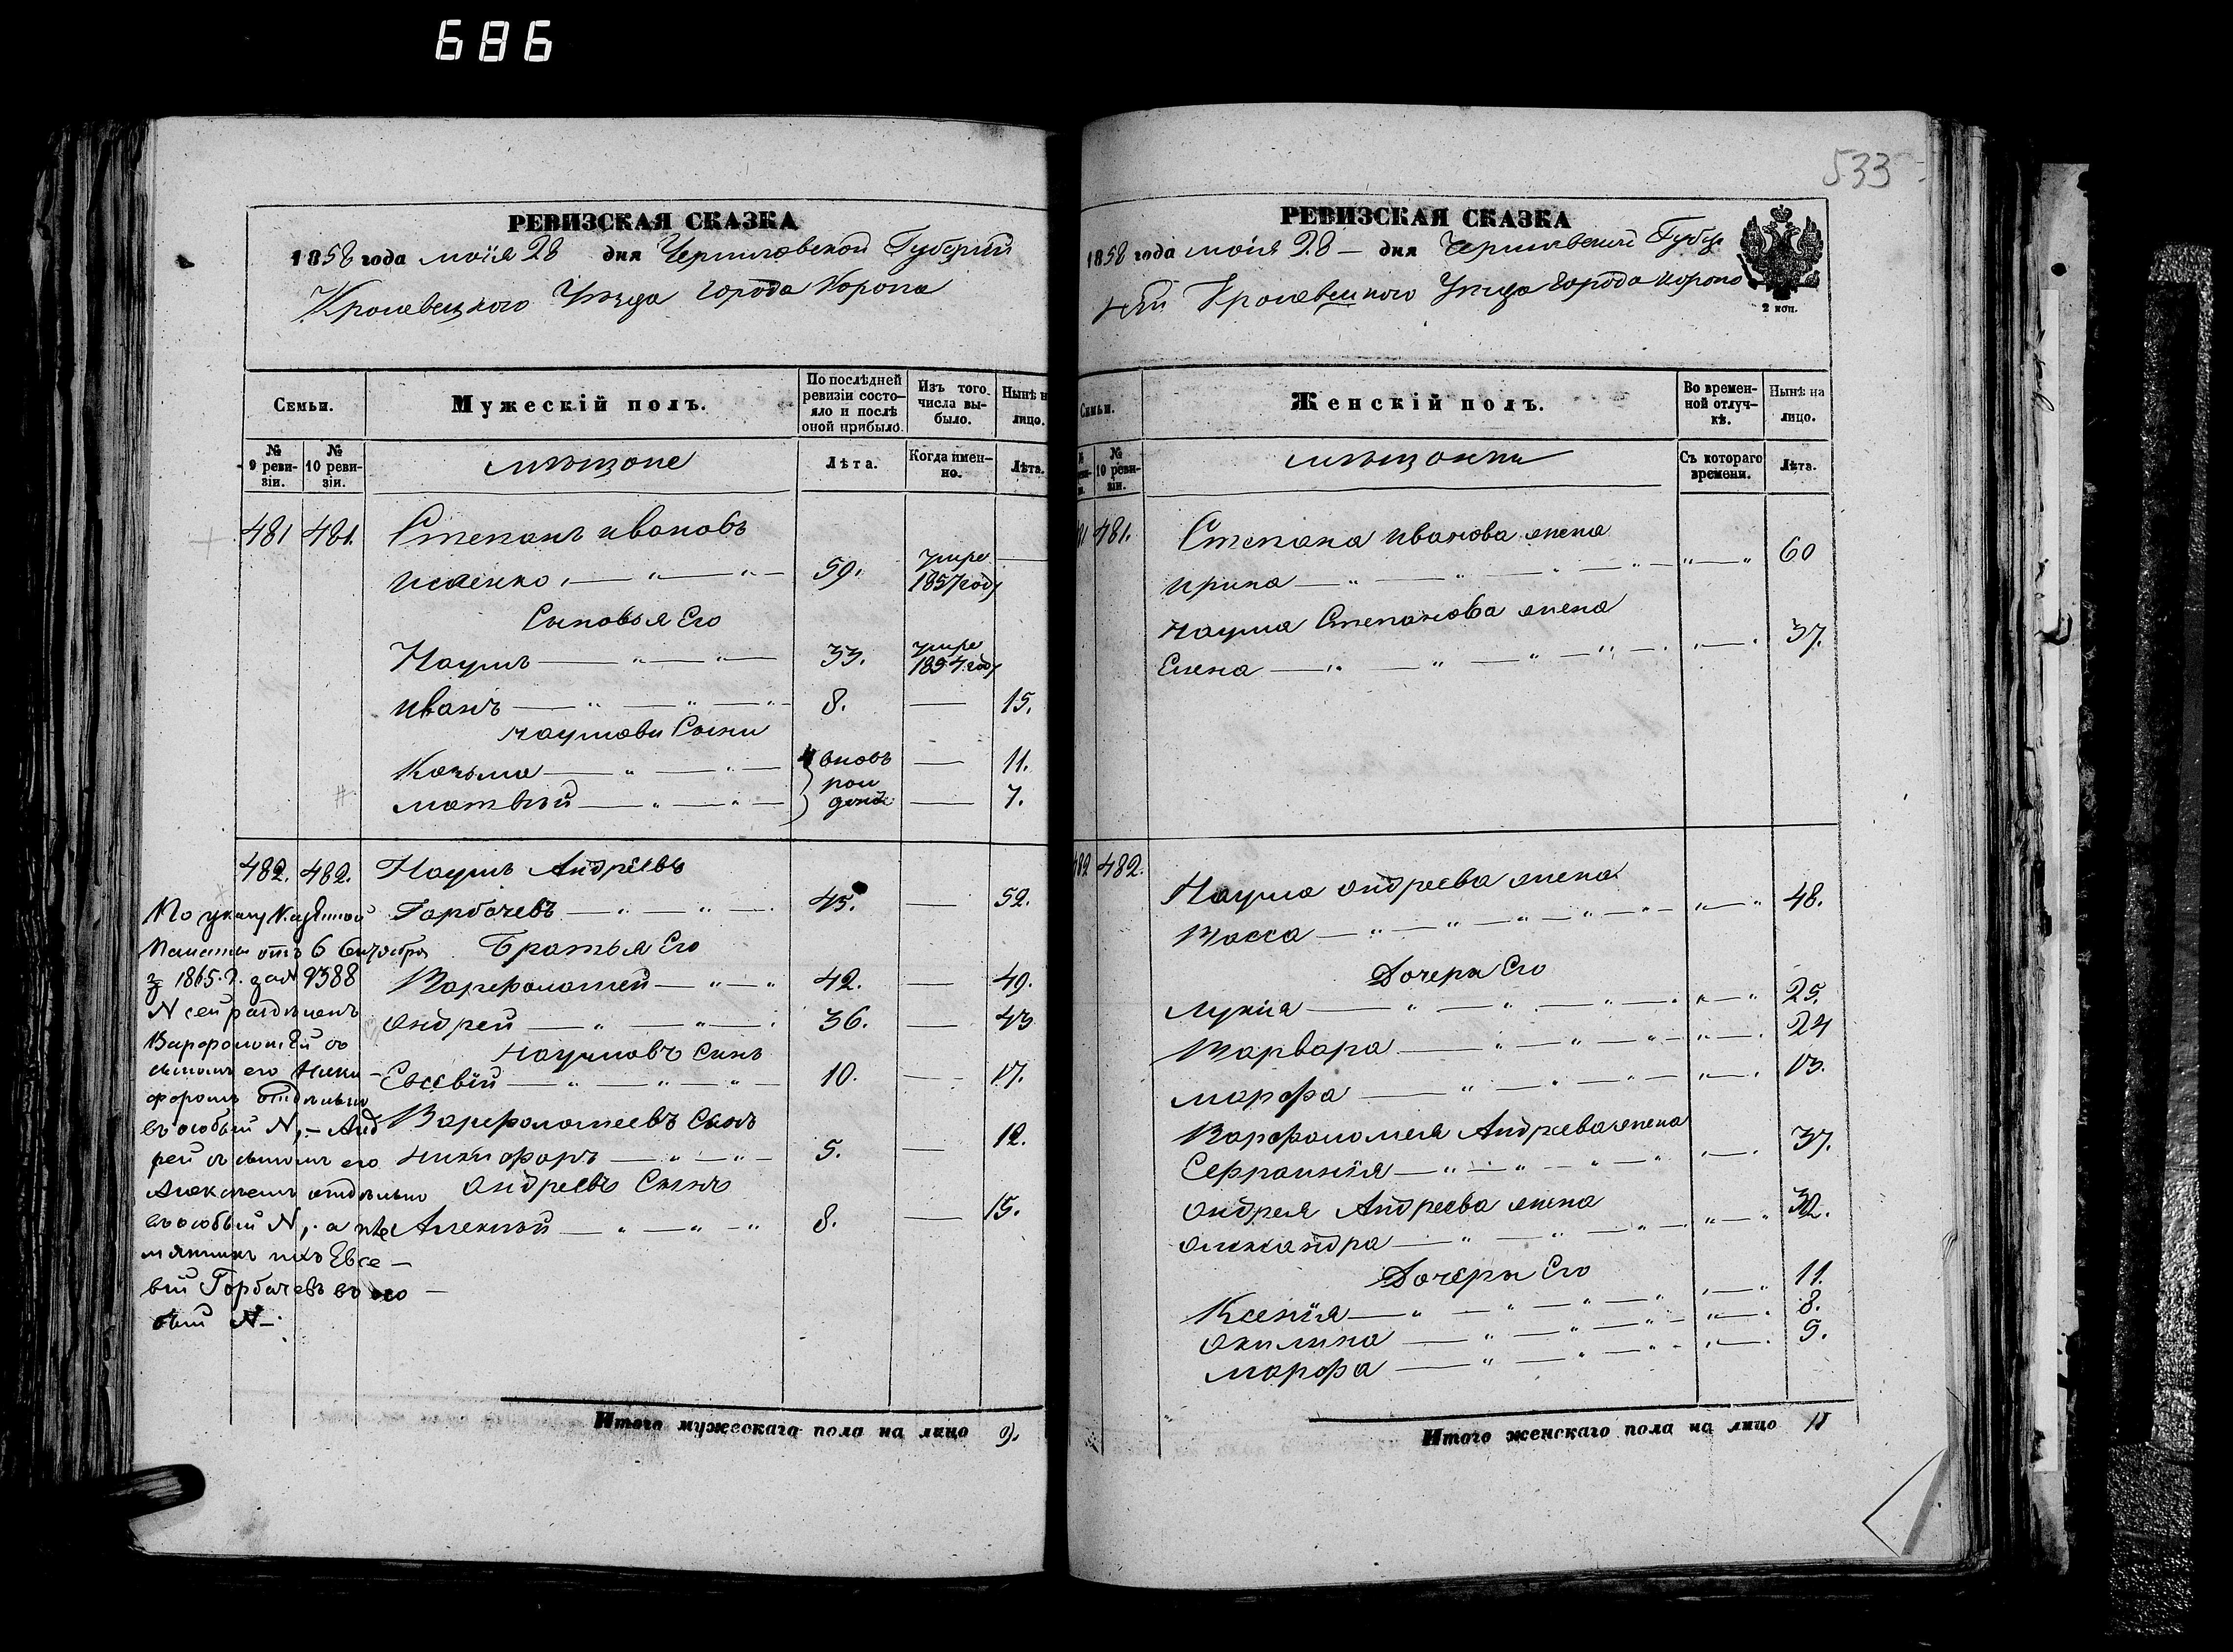 686
533
РЕВИЗСКАЯ СКАЗКА
1858 года маія 28 дня Черниговской Губерніи
Кролевецкого Уѣзда города Коропа
Семьи.
Мужескій полъ.
По послѣдней ревизіи состояло и послѣ оной прибыло.
Изъ того числа выбыло.
Нынѣ на лицо.
№ 9 ревизіи.
№ 10 ревизіи.
мѣщане
Лѣта.
Когда именно.
Лѣта.
481 481. Степанъ Ивановъ
Исаенко 59. умре 1857 году
Сыновья Его
Наумъ 33. умре 1854 году
Иванъ 8. 15.
Наумови Сыни
Козьма 11.
вновь рожденіи
Матвѣй 7.
482. 482. Наумъ Андреевъ
Горбачевъ 45. 52.
Братья Его
Варфоломей 42. 49.
Андрей 36. 43
Наумовъ Синъ
Евсевій 10. 17.
Варфоломеевъ Синъ
Никифоръ 5. 12.
Андреевъ Синъ
Алексѣй 8. 15.
По указу Казенной
Палаты отъ 6 Сентября
1865 г. за N 9388
N сей раздѣленъ
Варфоломей съ
сыномъ его Ники-
форомъ отдѣльно
въ особый N, - Анд
рей съ сыномъ его
Алексѣемъ отдѣльно
въ особый N, а пле
мянникъ ихъ Евсе-
вій Горбачевъ въ осо-
бый N
Итого мужескага пола на лицо 9.
РЕВИЗСКАЯ СКАЗКА
1858 года маія 28 дня Черниговской Губер
ніи Кролевецкого Уѣзда города Коропа
2 коп.
Семьи.
Женскій полъ.
Во временной отлучкѣ.
Нынѣ на лицо.
№ 10 ревизіи.
мѣщанки
Съ котораго времени.
Лѣта.
481. Степана Иванова жена
Ирина 60
Наума Степанова жена
Елена 37.
482 482. Наума Андреева жена
Васса 48.
Дочери Его
Лукія 25.
Варвара 24
Марфа 13.
Варфоломея Андреева жена
37.
Андрея Андреева жена
Александра 32.
Дочери Его
Ксенія 11.
Акилина 8.
Марфа 5.
Итого женскаго пола на лицо 11